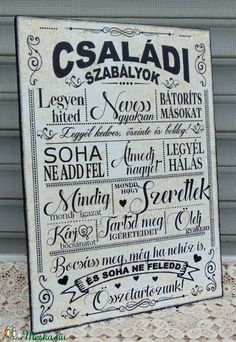 CSALÁDI
SZABÁLYOK
Legyen hited
Nevess gyakran
BÁTORÍTS MÁSOKAT
Legyél kedves, őszinte és boldog!
SOHA NE ADD FEL
Álmodj nagyot
LEGYÉL HÁLÁS
Mindig mondj igazat
MONDD, HOGY Szeretlek
Kérj bocsánatot
Tartsd meg ÍGÉRETEIDET
Ölelj gyakran
Bocsáss meg, még ha nehéz is,
ÉS SOHA NE FELEDD:
Összetartozunk!
Meska.hu